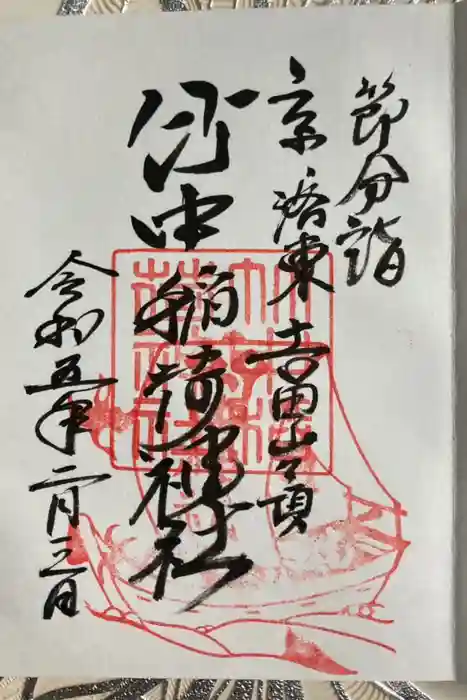 節分詣
京洛東 吉田山頂
竹中稲荷神社
令和五年二月三日